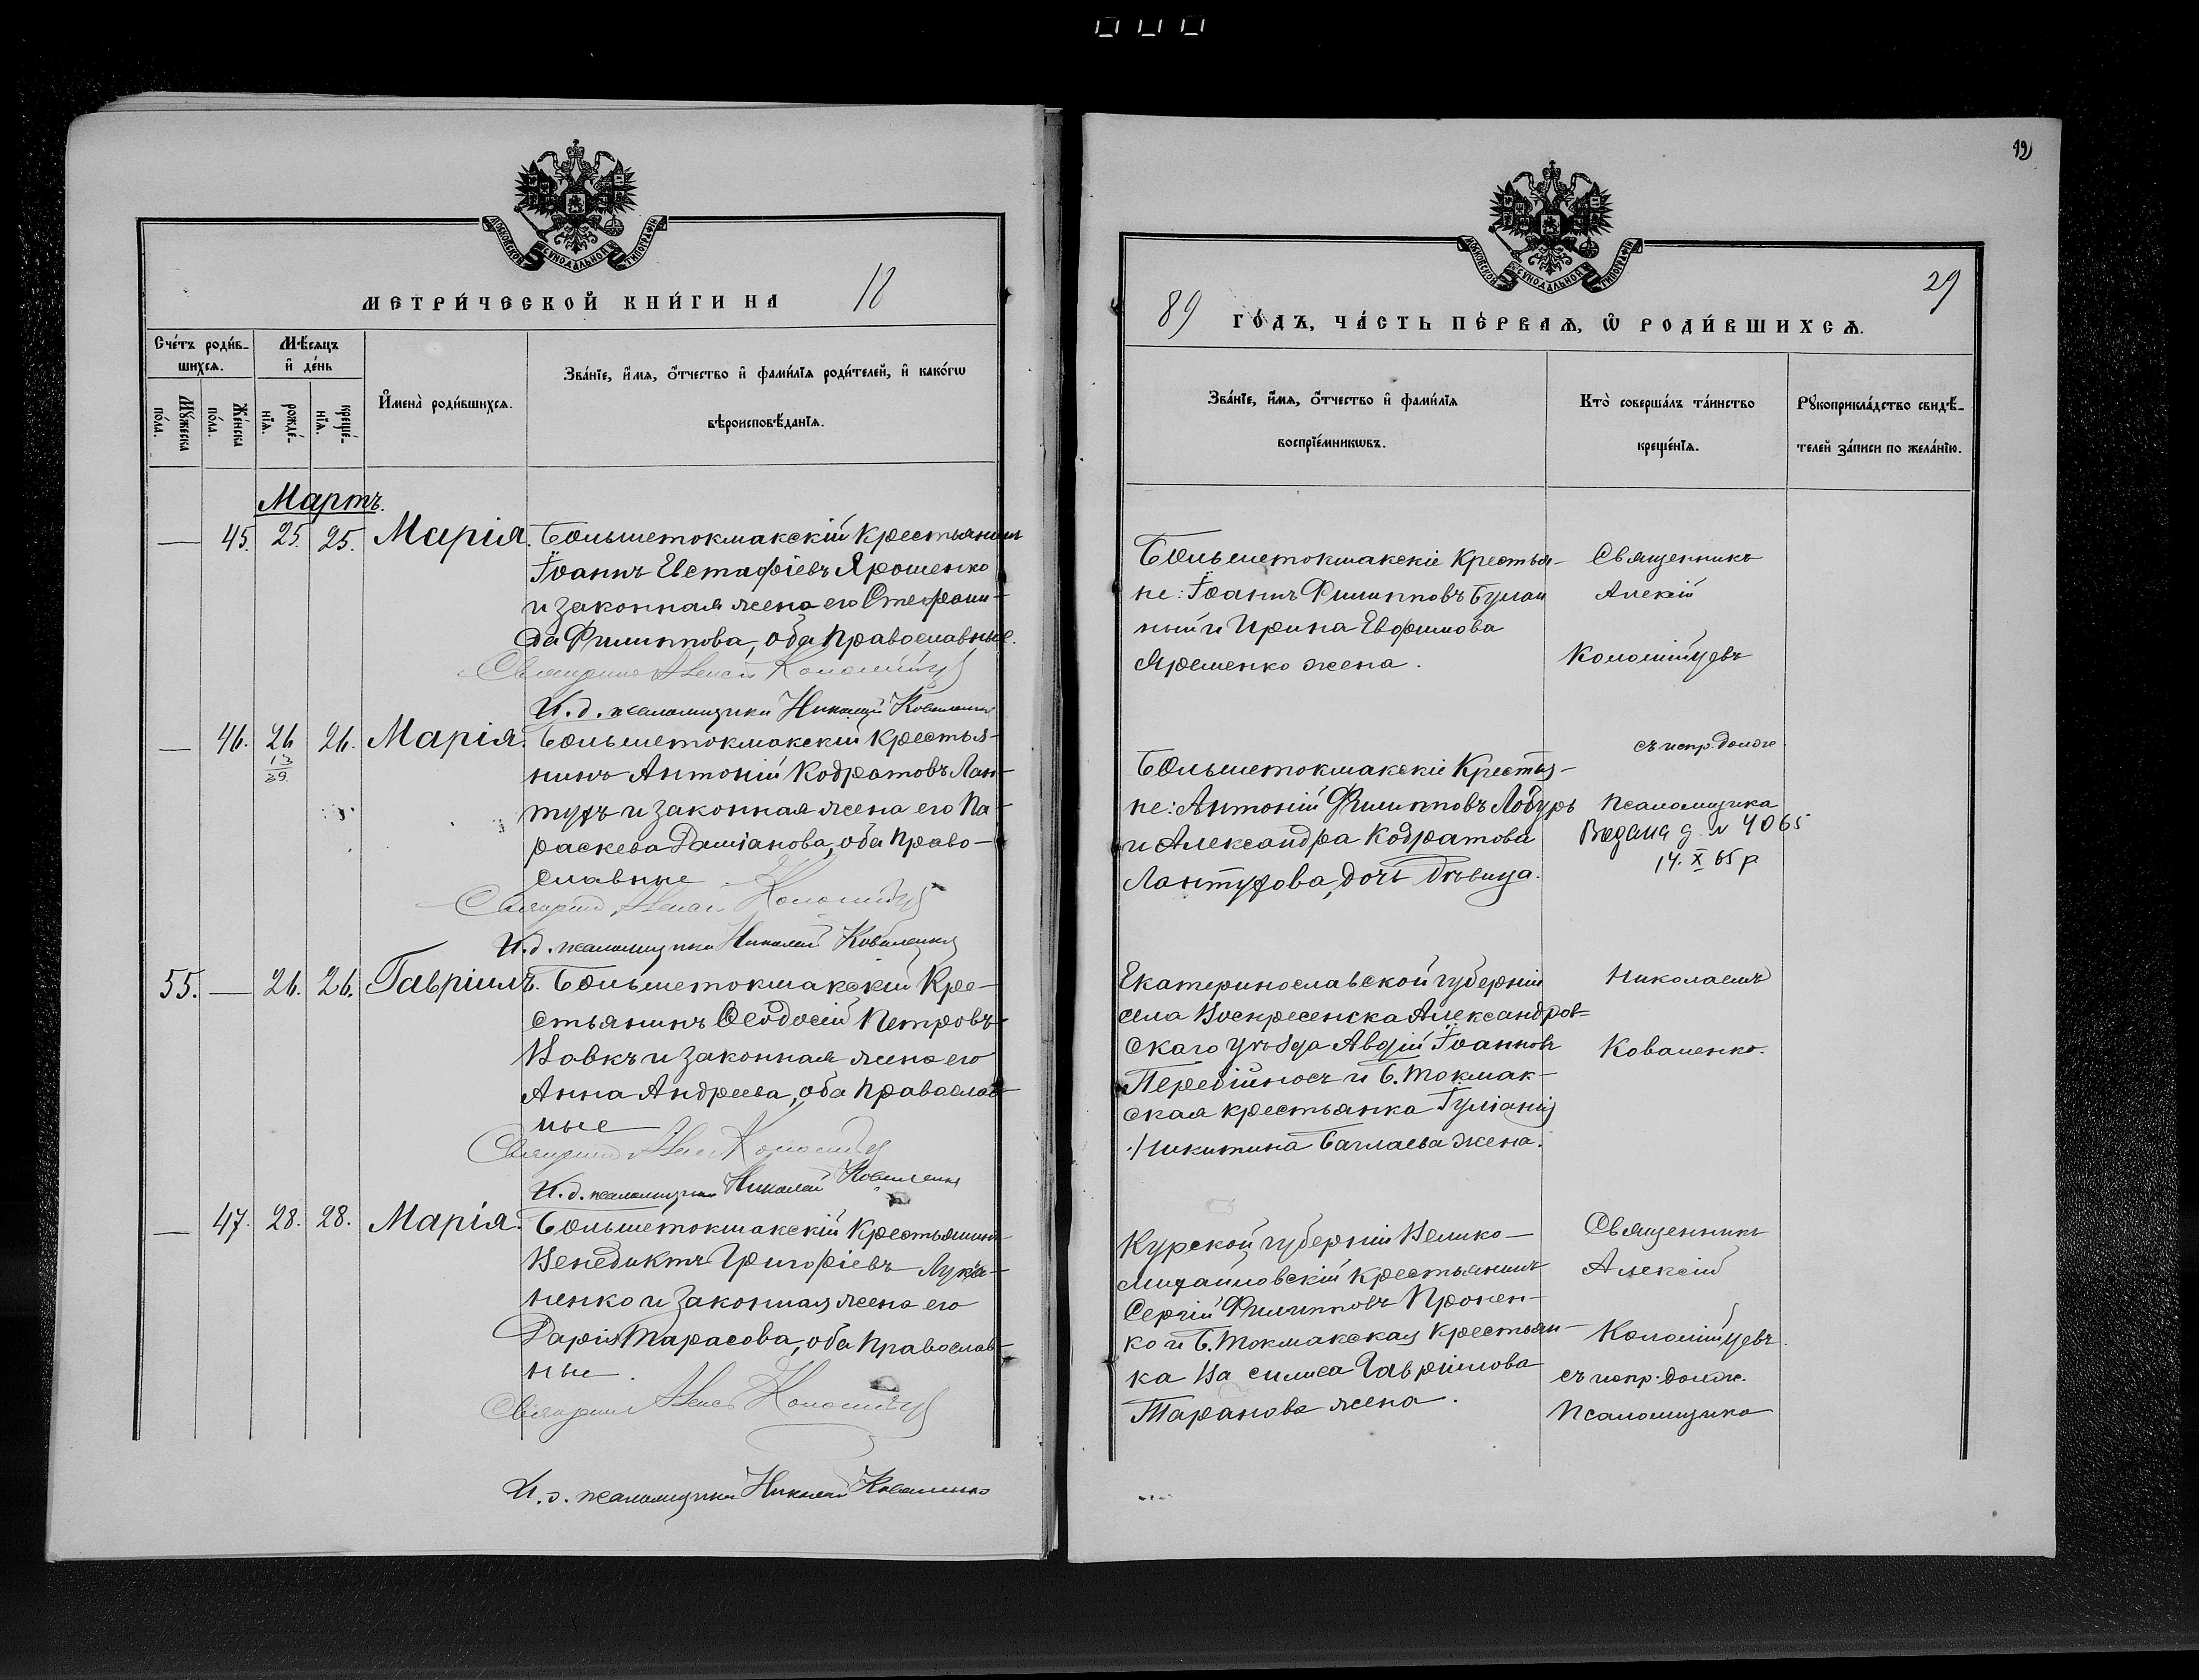 МОСКОВСКОЙ СѴНОДАЛЬНОЙ ТИПОГРАФІИ
МЕТРИ́ЧЕСКОЙ КНИ́ГИ НА 18
Сче́тъ роди́в-
шихсѧ.
Мꙋ́жеска
по́ла.
Же́нска
по́ла.
Мѣ́сѧцъ
и҆ де́нь
рожде́-
нїѧ.
креще́-
нїѧ.
И҆мена̀ роди́вшихсѧ.
Зва́нїе, и҆́мѧ, ѻ҆́тчество и҆ фами́лїѧ роди́телей, и҆ како́гѡ
вѣроисповѣ́данїѧ.
Мартъ.
— 45. 25. 25. Марія. Большетокмакскій крестьянинъ
Іоаннъ Евстафіевъ Ярошенко
и законная жена его Стефани-
да Филиппова, оба православные.
Священникъ Алексій Коломійцевъ
И. д. псаломщика Николай Коваленко
— 46. 26 26. Марія. Большетокмакскій крестья-
13
39
нинъ Антоній Кодратовъ Лан-
тухъ и законная жена его Па-
раскева Даміанова, оба право-
славные
Священникъ Алексій Коломійцевъ
И. д. псаломщика Николай Коваленко
55. — 26. 26. Гавріилъ. Большетокмакскій кре-
стьянинъ Ѳеодосій Петровъ
Вовкъ и законная жена его
Анна Андреева, оба православ-
ные
Священникъ Алексій Коломійцевъ
И. д. псаломщика Николай Коваленко
— 47. 28. 28. Марія. Большетокмакскій крестьянинъ
Венедиктъ Григоріевъ Лукья-
ненко и законная жена его
Дарія Тарасова, оба православ-
ные.
Священникъ Алексій Коломійцевъ
И. д. псаломщика Николай Коваленко
МОСКОВСКОЙ СѴНОДАЛЬНОЙ ТИПОГРАФІИ
29
89 ГО́ДЪ, ЧА́СТЬ ПЕ́РВАѦ, Ѡ҆ РОДИ́ВШИХСѦ.
Зва́нїе, и҆́мѧ, ѻ҆́тчество и҆ фами́лїѧ
воспрїе́мникѡвъ.
Кто̀ соверша́лъ та́инство
креще́нїѧ.
Рꙋкоприкла́дство свидѣ́-
телей за́писи по жела́нїю.
Большетокмакскіе крестья-
не: Іоаннъ Филипповъ Булан
ный и Ирина Евфимова
Яременко жена.
Священникъ
Алексій
Коломійцевъ
съ испр. должн.
Большетокмакскіе крестья-
не: Антоній Филипповъ Лобурь
и Александра Кодратова
Лантухова, дочь дѣвица.
псаломщика
Видана д. № 4065
14. X 65 р
Екатеринославской губерніи
села Воскресенска Александров-
скаго уѣзда Авдій Іоанновъ
Перебійносъ и Б. Токмак-
ская крестьянка Іуліанія
Никитина Баглаева жена.
Николаемъ
Коваленко.
Курской губерніи Велико-
михайловскій крестьянинъ
Сергій Филипповъ Пронен-
ко и Б. Токмакская крестьян-
ка Василиса Гавріилова
Таранова жена.
Священникъ
Алексій
Коломійцевъ
съ испр. должн.
псаломщика